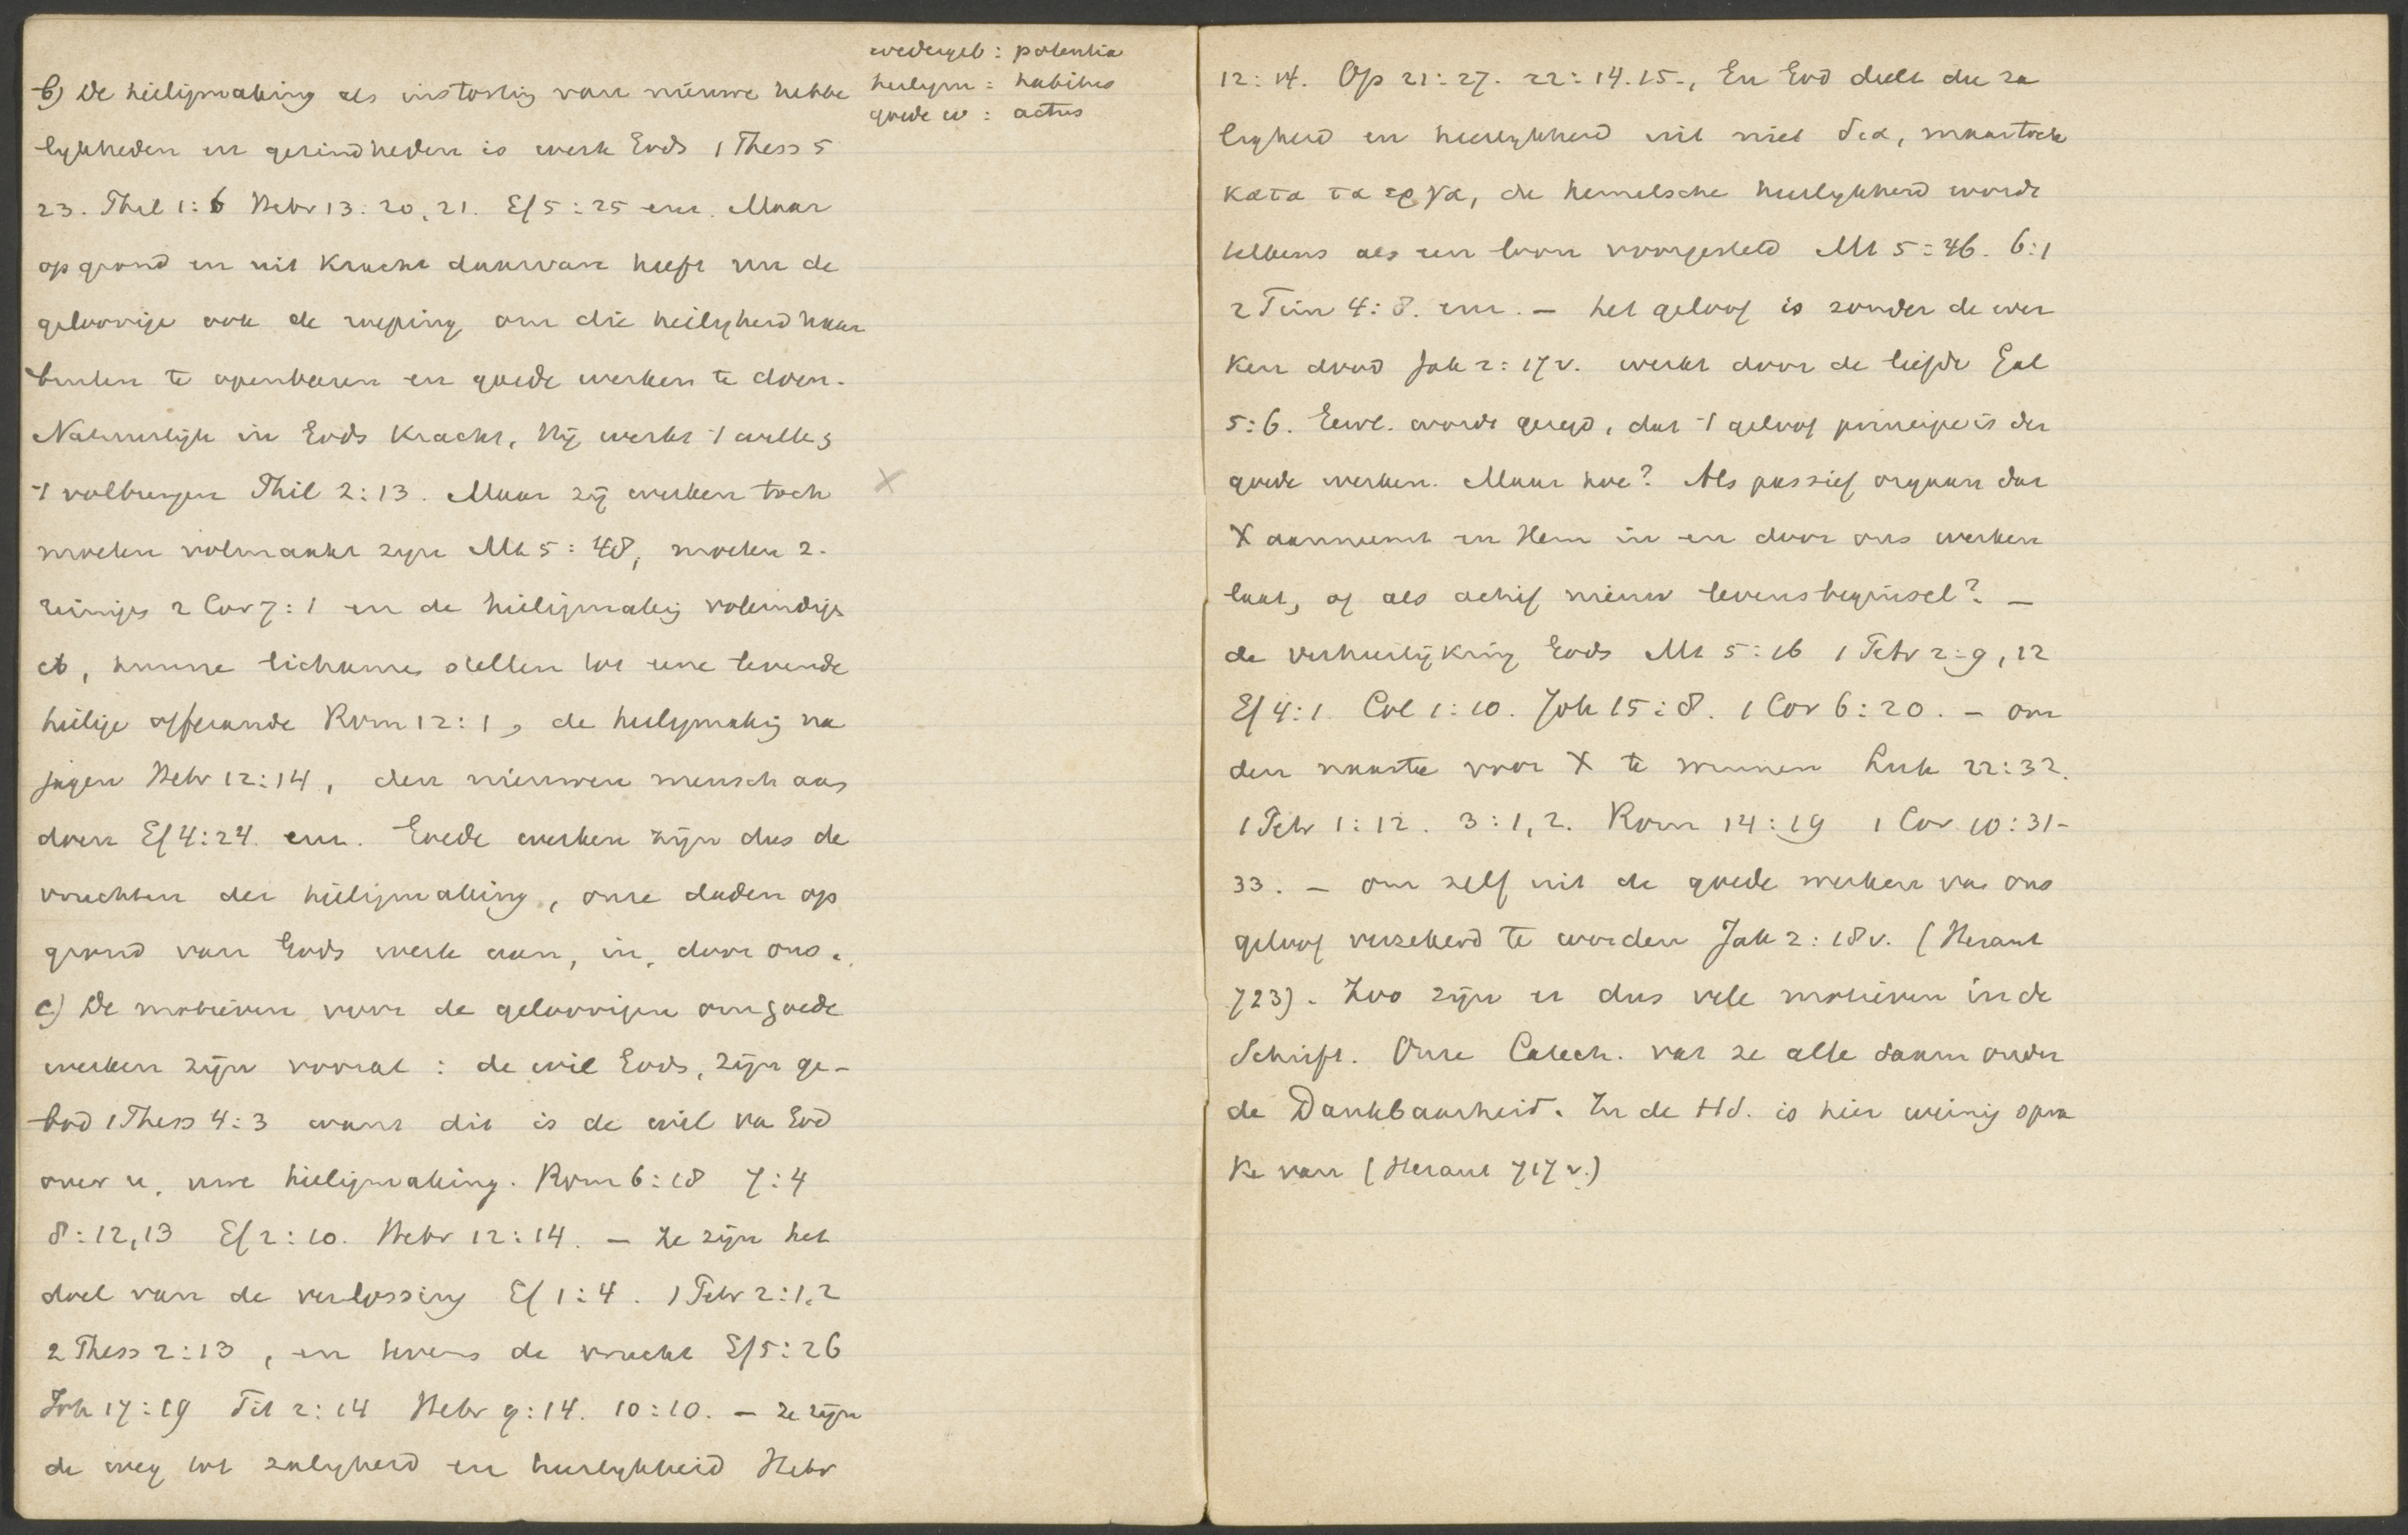 wedergeb : potentia
heiligm : habitus
goede w : actus
b) De heiligmaking als instorting van nieuwe hebbe
lykheden en gezindheden is werk Gods 1 Thess 5
23. Phil 1:6 Hebr 13:20,21. Ef 5:25 enz. Maar
op grond en uit kracht daarvan heeft nu de
geloovige ook de roeping om die heiligheid naar
buiten te openbaren en goede werken te doen.
Natuurlijk in Gods kracht, Hij werkt 't willen &
't volbrengen Phil 2:13. Maar zij werken toch
moeten volmaakt zyn Mt 5:48, moeten z.
reinigen 2 Cor 7:1 en de heiligmakig voleindige
et, hunne lichamen stellen tot eene levende
heilige offerande Rom 12:1, de heiligmakig na
jagen Hebr 12:14, den nieuwen mensch aan
doen Ef 4:24. enz. Goede werken zijn dus de
vruchten der heiligmaking, onze daden op
grond van Gods werk aan, in, door ons.
c) De motieven voor de geloovigen om goede
werken zijn vooral : de wil Gods, zijn ge-
bod 1 Thess 4:3 want dit is de wil van God
over u, uwe heiligmaking. Rom 6:18 7:4
8:12,13 Ef 2:10. Hebr 12:14. – Ze zijn het
doel van de verlossing Ef 1:4. 1 Petr 2:1.2
2 Thess 2:13, en tevens de vrucht Ef 5:26
Joh 17:19 Tit 2:14 Hebr 9:14. 10:10. – Ze zijn
de weg tot zaligheid en heerlykheid Hebr
12:14. Op 21:27. 22:14.15., En God deelt die za
ligheid en heerlykheid uit niet δια, maar toch
κατα τα εργα, de hemelsche heerlykheid wordt
telkens als een loon voorgesteld Mt 5:46. 6:1
2 Tim 4:8. enz. – het geloof is zonder de wer
ken dood Jak 2:17v. werkt door de liefde Gal
5:6. Gewl. wordt gezegd, dat 't geloof principe is der
goede werken. Maar hoe? Als passief orgaan dat
X aanneemt en Hem in en door ons werken
laat, of als actief nieuw levensbeginsel? –
de verheerlijking Gods Mt 5:16 1 Petr 2:9,12
Ef 4:1. Col 1:10. Joh 15:8. 1 Cor 6:20. – om
den naaste voor X te winnen Luk 22:32.
1 Petr 1:12. 3:1,2. Rom 14:19 1 Cor 10:31-
33. – om zelf uit de goede werken van ons
geloof verzekerd te worden Jak 2:18v. (Heraut
723). Zoo zijn er dus vele motieven in de
Schrift. Onze Catech. vat ze alle saam onder
de Dankbaarheid. In de Hd. is hier weinig spra
ke van (Heraut 717v.)